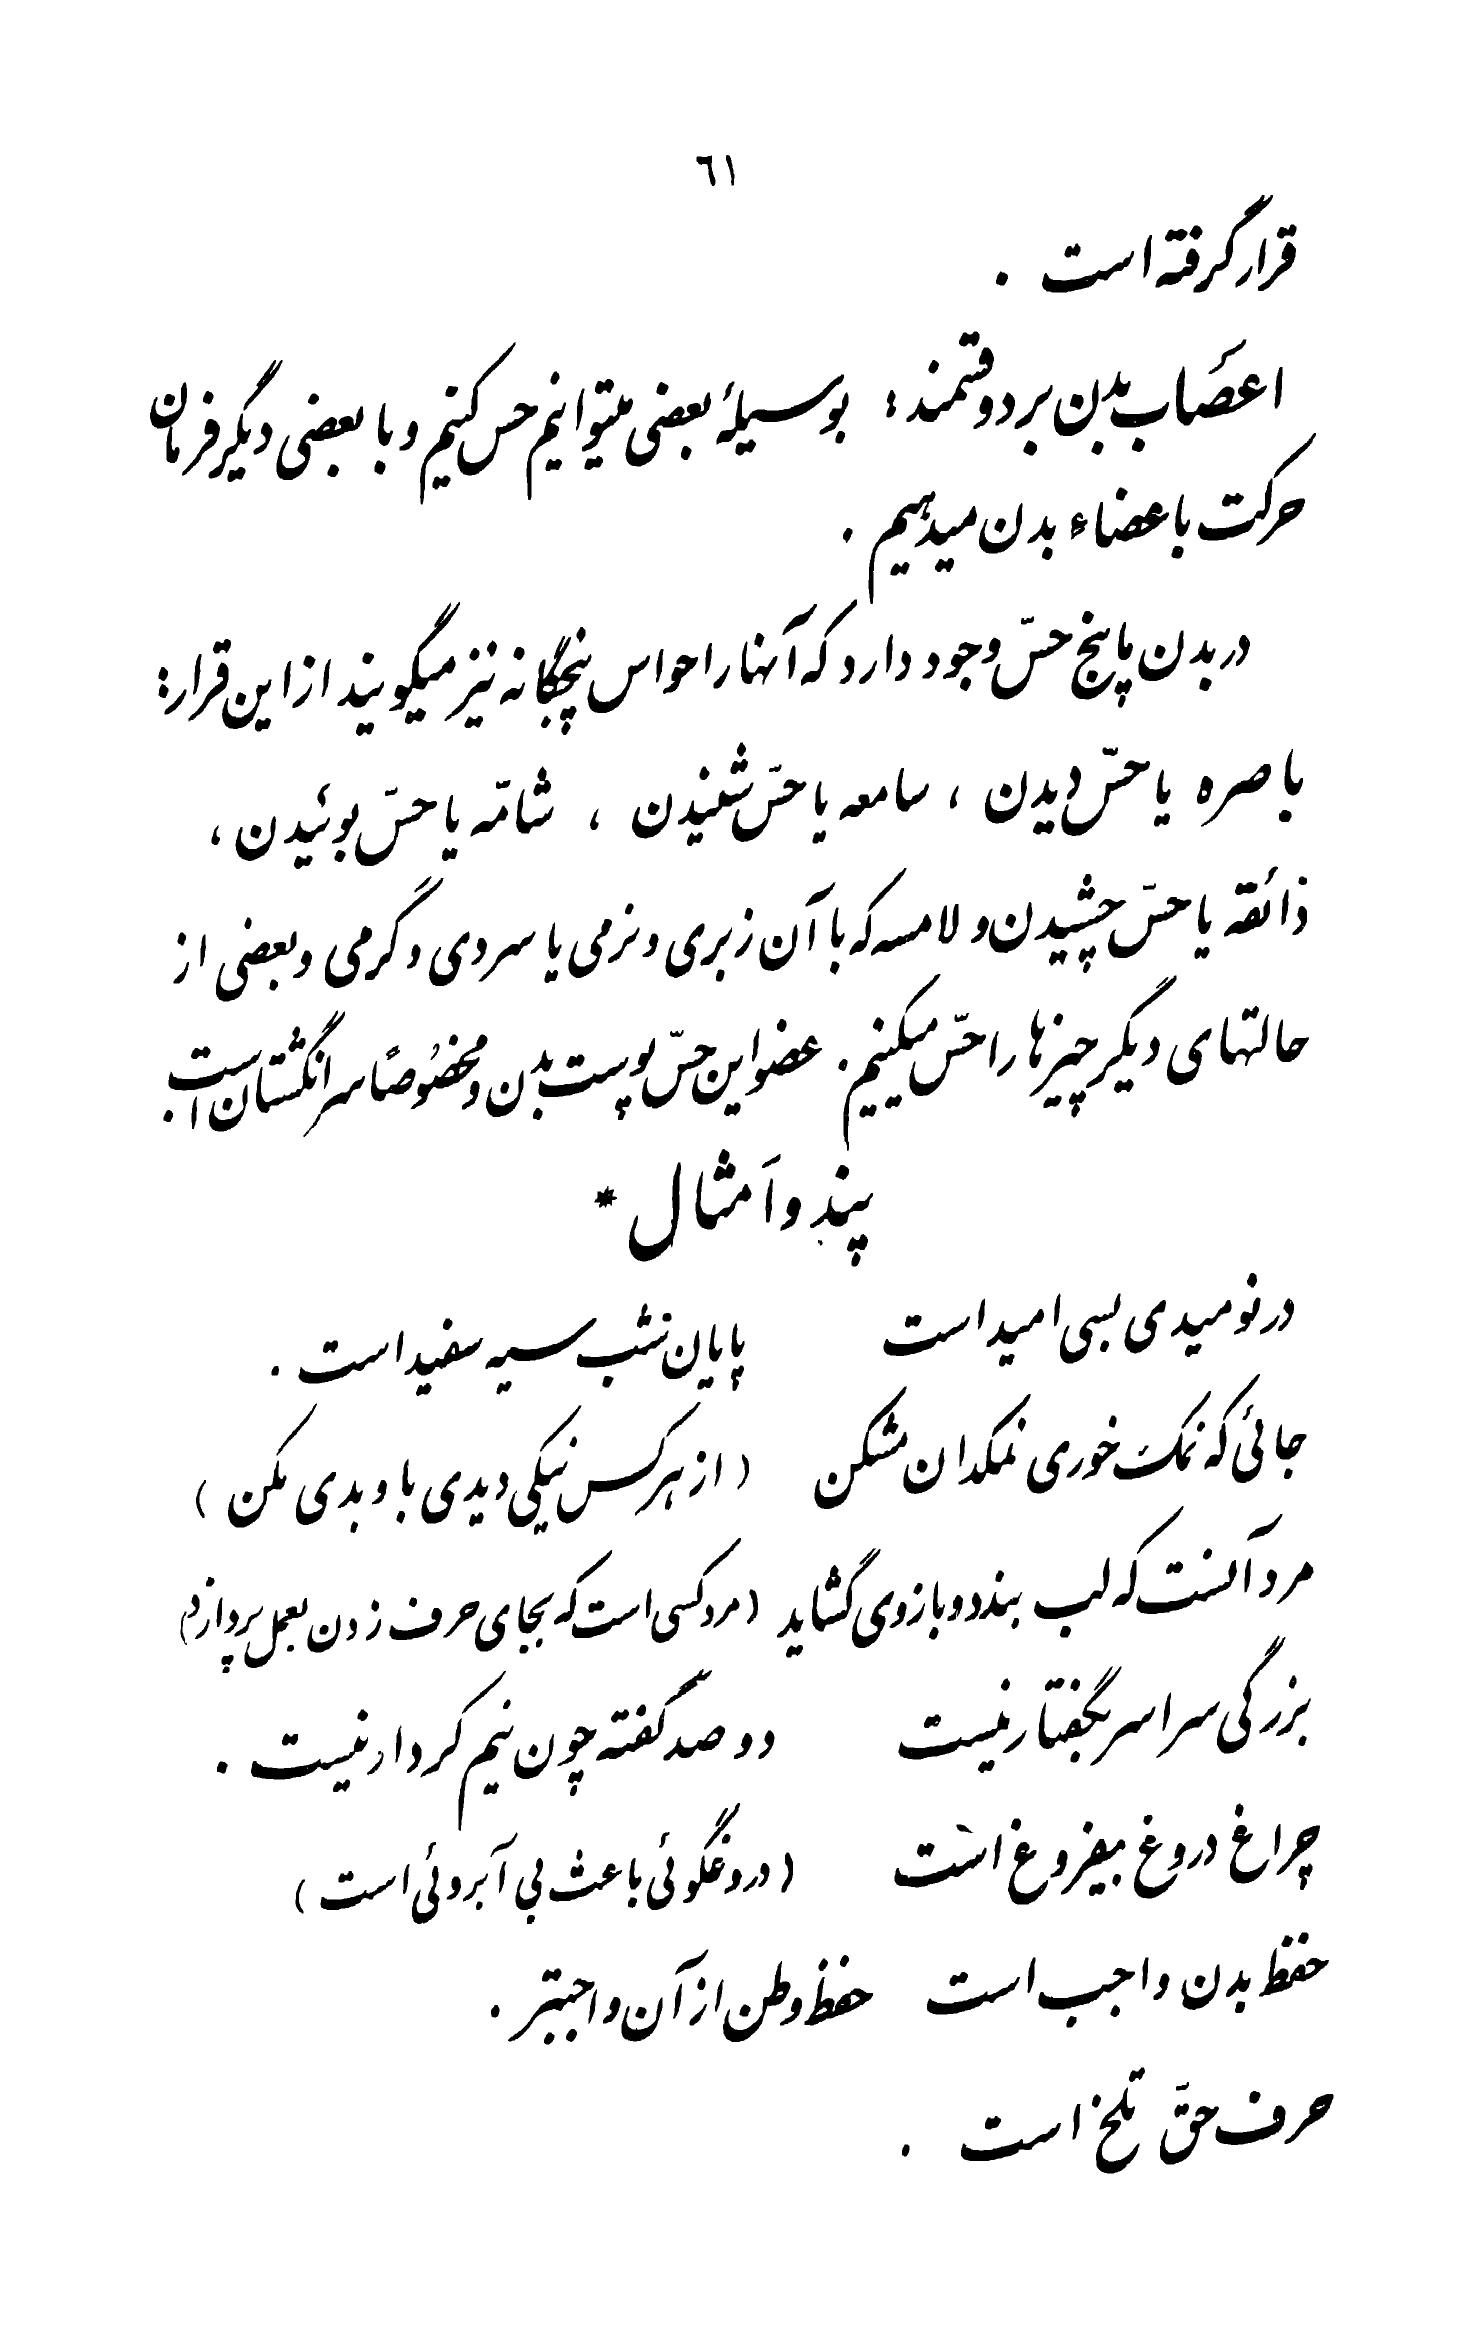 ٦١
قرار گرفته است .
اعصَاب بدن بر دو قسمند : بوسیلهٔ بعضی میتوانیم حس کنیم و با بعضی دیگر فرمان
حرکت باعضاء بدن میدهیم .
در بدن پانج حسّ وجود دارد که آنها را حواس پنجگانه نیز میگویند از این قرار :
باصره یا حسّ دیدن ، سامعه یا حسّ شنیدن ، شامّه یا حسّ بوئیدن ،
ذائقه یا حسّ چشیدن و لامسه که با آن زبری و نرمی یا سردی و گرمی و بعضی از
حالتهای دیگر چیزها را حسّ میکنیم . عضو این حسّ پوست بدن و مخصُوصًا سر انگشتان است .
پند و اَمثال *
در نومیدی بسی امید است پایان شب سیه سفید است .
جائی که نمک خوری نمکدان مشکن ( از هر کس نیکی دیدی با و بدی مکن )
مرد آنست که لب ببندد و بازوی گشاید ( مرد کسی است که بجای حرف زدن بعمل پردازد )
بزرگی سراسر بگفتار نیست دو صد گفته چون نیم کردار نیست .
چراغ دروغ بیفروغ است ( دروغگوئی باعث بی آبروئی است )
حفظ بدن واجب است حفظ وطن از آن واجبتر .
حرف حقّ تلخ است .